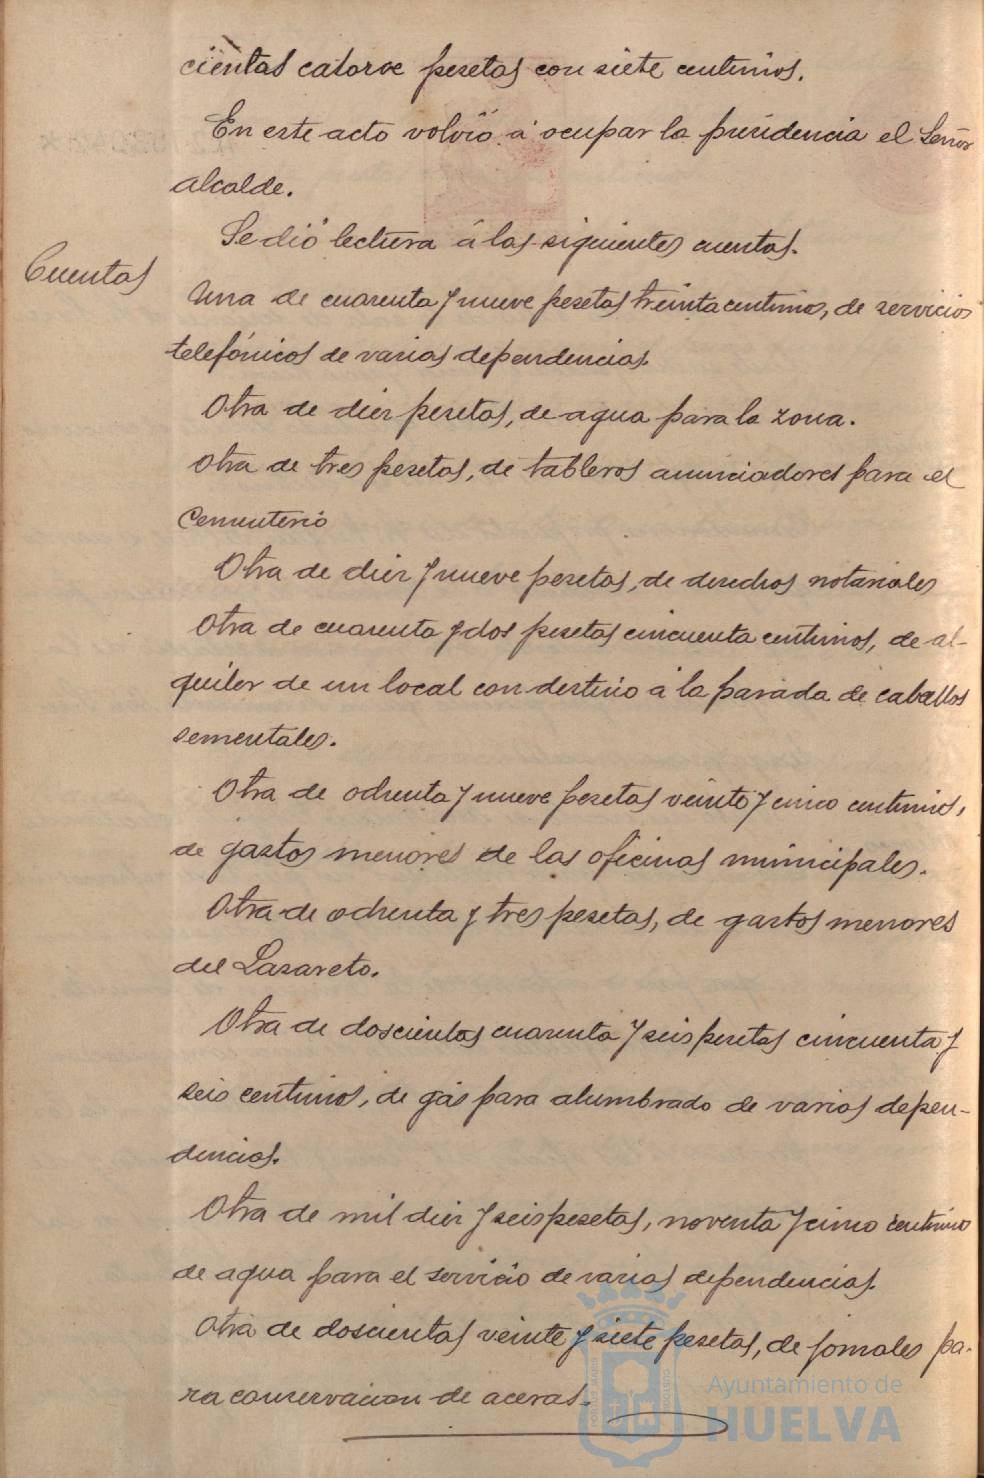 cientas catorce pesetas con siete centimos.
En este acto volvió á ocupar la presidencia el Señor
alcalde.
Se dió lectura á las siguientes cuentas.
Cuentas
Una de cuarenta y nueve pesetas treinta centimos, de servicios
telefónicos de varias dependencias.
Otra de diez pesetas, de agua para la zona.
Otra de tres pesetas, de tableros anunciadores para el
Cementerio
Otra de diez y nueve pesetas, de derechos notariales
Otra de cuarenta y dos pesetas cincuenta centimos, de al-
quiler de un local con destino á la parada de caballos
sementales.
Otra de ochenta y nueve pesetas veinte y cinco centimos,
de gastos menores de las oficinas municipales.
Otra de ochenta y tres pesetas, de gastos menores
del Lazareto.
Otra de doscientas cuarenta y seis pesetas cincuenta y
seis centimos, de gas para alumbrado de varias depen-
dencias.
Otra de mil diez y seis pesetas, noventa y cinco centimo
de agua para el servicio de varias dependencias.
Otra de doscientas veinte y siete pesetas, de jornales pa-
ra conservacion de aceras.
Ayuntamiento de
HUELVA